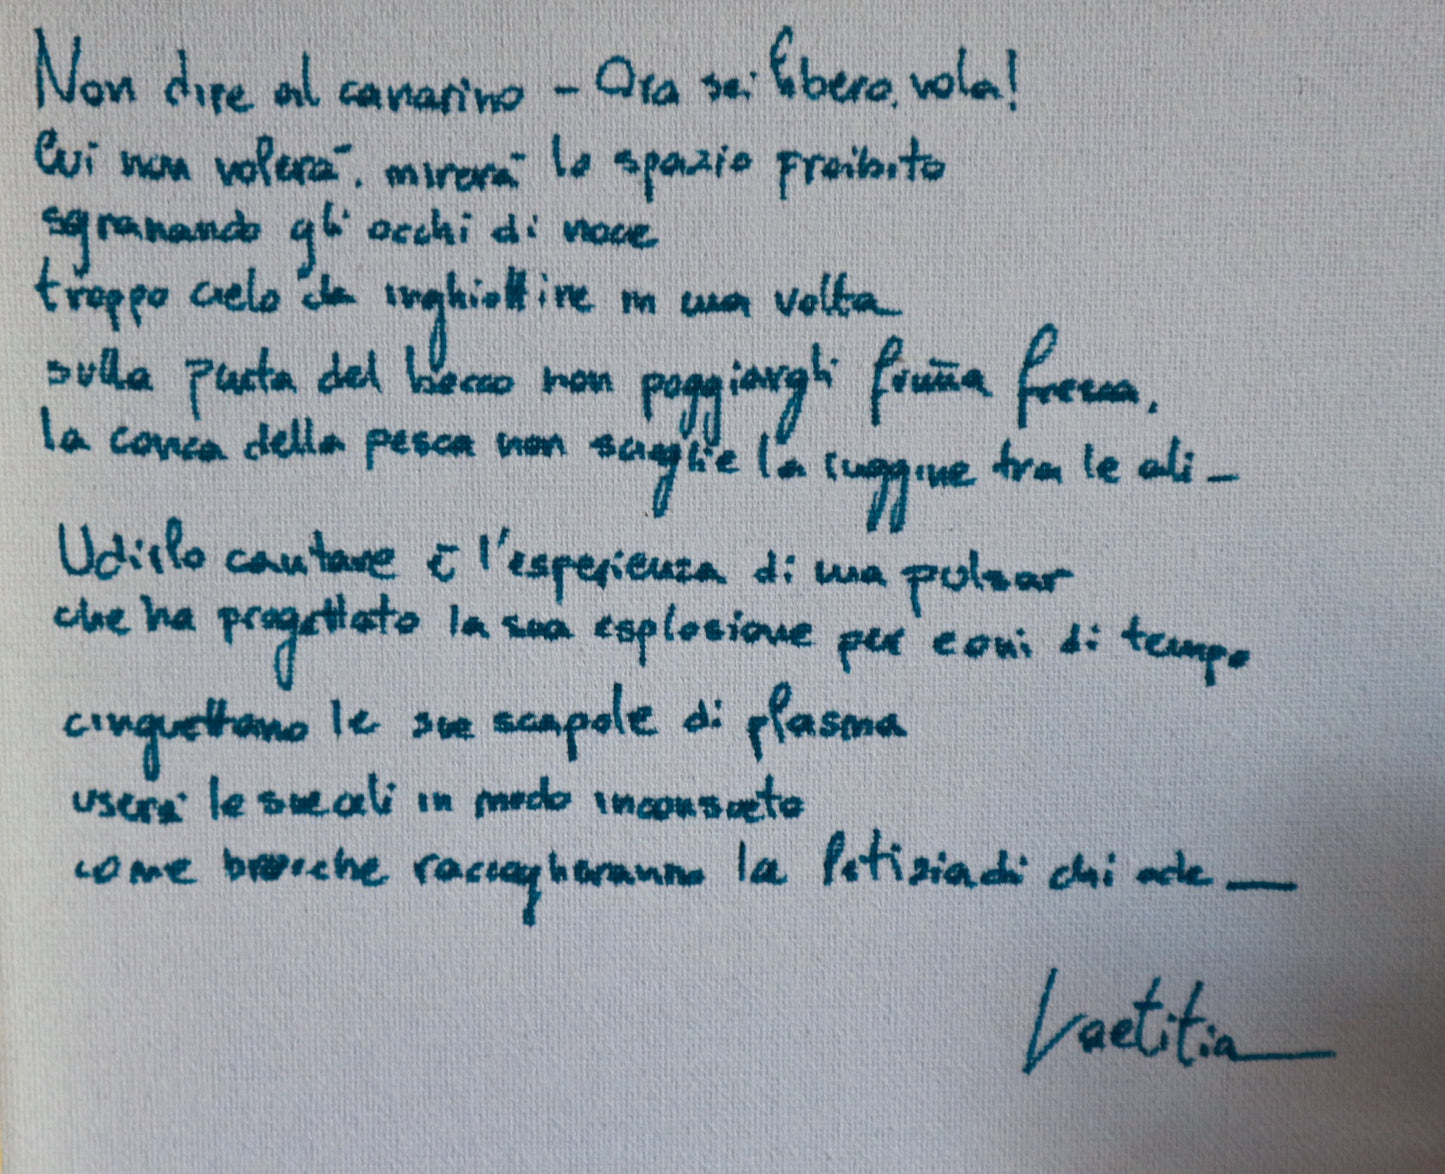 Non dire al canarino – Ora sei libero, vola!
Lui non volerà, mirerà lo spazio proibito
sgranando gli occhi di noce
troppo cielo da inghiottire in una volta
sulla punta del becco non poggiargli frutta fresca,
la conca della pesca non scioglie la ruggine tra le ali –
Udirlo cantare è l'esperienza di una pulsar
che ha progettato la sua esplosione per eoni di tempo
cinguettano le sue scapole di plasma
userà le sue ali in modo inconsueto
come raccoglieranno la letizia di chi ode —
Laetitia